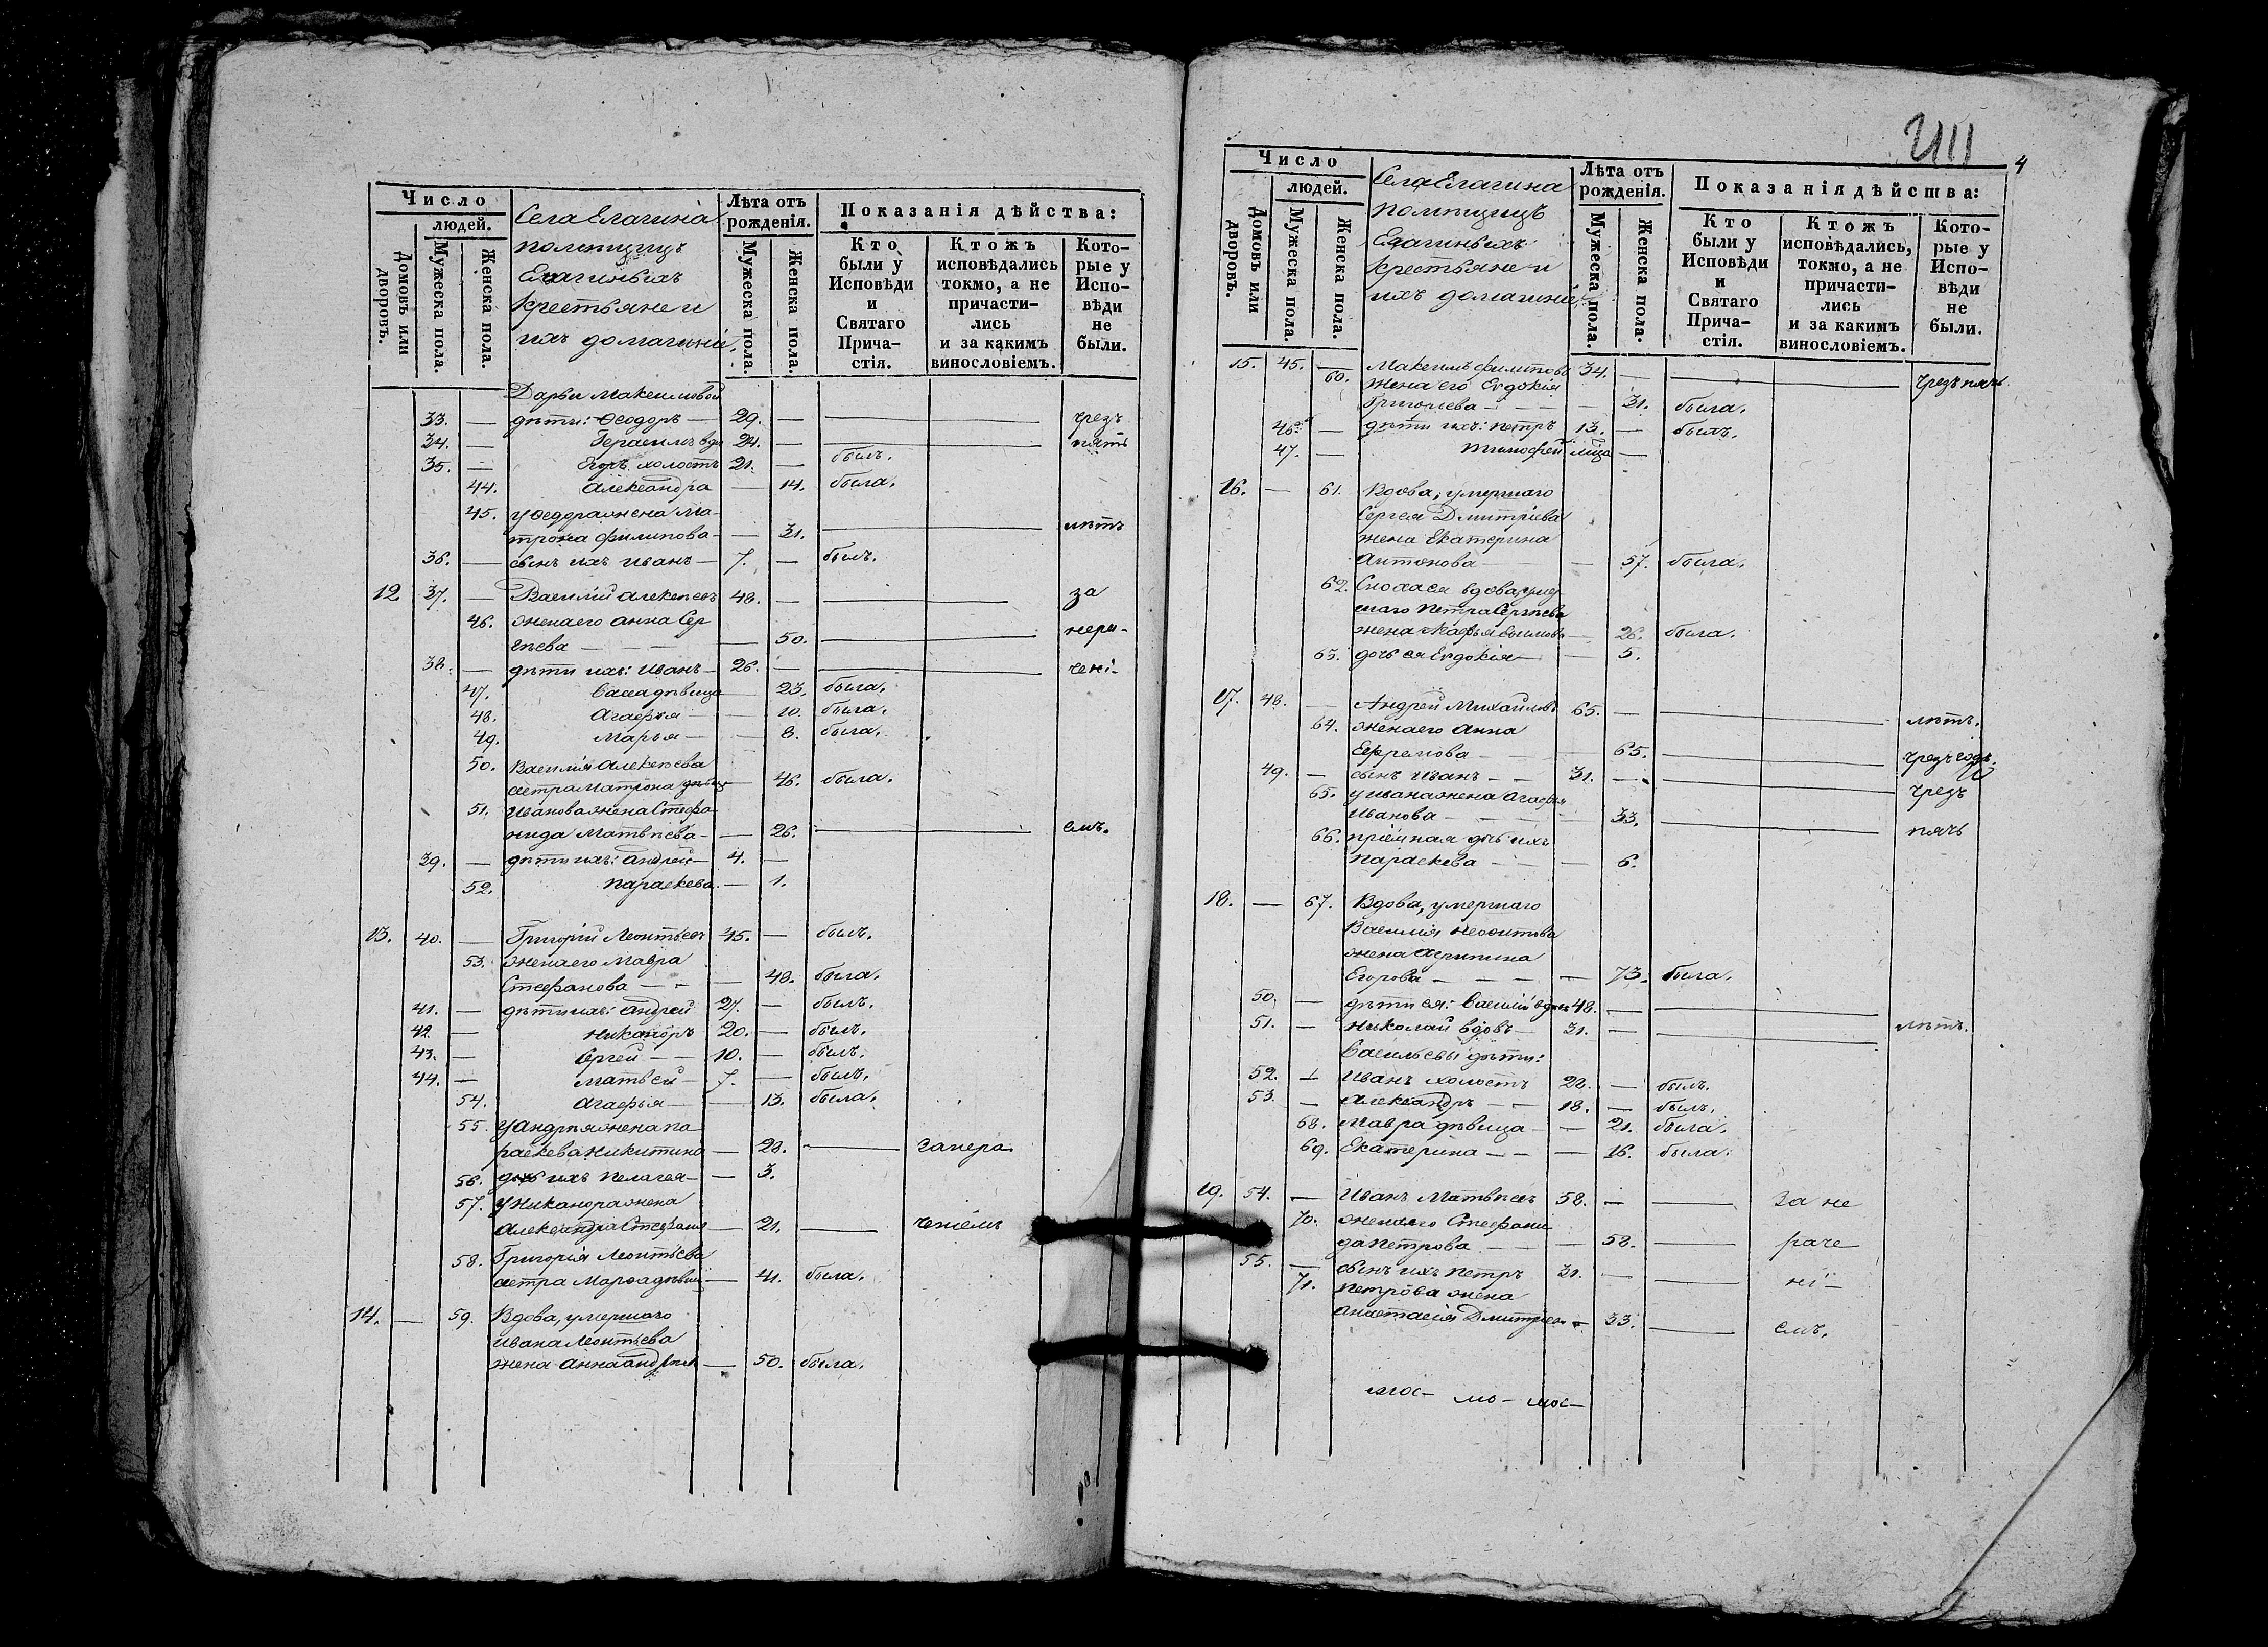 Число
людей.
Домовъ или дворовъ.
Мужеска пола.
Женска пола.
Села Елагина
помѣщицъ
Елагиныхъ
крестьяне и
ихъ домашніи
Лѣта отъ рожденія.
Мужеска пола.
Женска пола.
Показанія дѣйства:
Кто были у Исповѣди и Святаго Прича- стія.
Ктожъ исповѣдались токмо, а не причасти- лись и за какимъ винословіемъ.
Кото- рые у Испо- вѣди не были.
Дарьи Максимовой
33. — дѣти: Ѳеодоръ — 29. — — чрезъ
34. — Герасимъ вдв 24. — — пять
35. — Егоръ холостъ 21. — былъ.
44. Александра — 14. была.
45. у Ѳедора жена Ма-
трона Филипова — — 31. — лѣтъ
36. — сынъ ихъ Иванъ — 7. — былъ.
12. 37. — Василій Алексѣевъ 48. — — за
46. жена его Анна Сер
гѣева — — — 50. — нера-
38. — дѣти ихъ: Иванъ — 26. — — чені-
47. дѣвица — 23. была.
48. Агафья — — 10. была.
49. Марья — — 8. была.
50. Василія Алексѣева
сестра Матрона дѣвиц — 46. была.
51. Иванова жена Стефа
нида Матвѣева — — 26. — емъ.
39. — дѣти ихъ: Андрей — 4. —
52. Параскева — 1.
13. 40. — Григорій Леонтьевъ 45. — былъ.
53. жена его Мавра
Стефанова — — — 48. была.
41. — дѣти ихъ: Андрей 27. — былъ.
42. — Никаноръ 20. — былъ.
43. — Сергей — — 10. — былъ.
44. — Матвей — 7. — былъ.
54. Агафья — — 13. была.
55. у Андрея жена Па
раскева Никитина — 28. — за нера
56. дчь ихъ Пелагея — — 3.
57. у Никанора жена
Александра Стефан — 21. — ченіемъ
58. Григорія Леонтьева
сестра Марѳа дѣвиц — 41. была.
14. — 59. Вдова, умершаго
Ивана Леонтьева
жена Анна Андрѣев — 50. была.
4
Число
людей.
Домовъ или дворовъ.
Мужеска пола.
Женска пола.
Села Елагина
помѣщицъ
Елагиныхъ
крестьяне и
ихъ домашніи
Лѣта отъ рожденія.
Мужеска пола.
Женска пола.
Показанія дѣйства:
Кто были у Исповѣди и Святаго Прича- стія.
Ктожъ исповѣдались, токмо, а не причасти- лись и за какимъ винословіемъ.
Кото- рые у Испо- вѣди не были.
15. 45. — Максимъ Филипово 34. — — чрезъ пять
60. жена его Евдокія
Григорьева — — — — 31. была.
46. — дѣти ихъ: Петръ 13. — былъ.
47. — Тимофей —
16. — 61. Вдова, умершаго
Сергея Дмитріева
жена Екатерина
Антонова — — 57. была.
62. Сноха ея вдова, умер
шаго Петра Сергѣева
жена — 26. была.
63. дочь ея Евдокія — — 5.
17. 48. — Андрей Михайловъ 65. — — лѣтъ.
64. жена его Анна
Ефремова — — 65. — чрезъ годъ.
49. — сынъ Иванъ — — 31. — — чрезъ
65. у Ивана жена Агафья
Иванова — — — 33. — пять
66. пріемная дчь ихъ
Параскева — — — 6.
18. — 67. Вдова, умершаго
Василія
жена Агрипина
Егорова — — — — 73. была.
50. — дѣти ея: Василій вдов 48. — —
51. — Николай вдовъ — 31. — — лѣтъ.
Васильевы дѣти:
52. — Иванъ холостъ 22. — былъ.
53. — Александръ — — 18. — былъ.
68. Мавра дѣвица — — 21. была.
69. Екатерина — — — 16. была.
19. 54. — Иванъ Матвѣевъ 58. — — за не
70. жена его Стефани
да Петрова — — — 58. — раче
55. — сынъ ихъ Петръ 31. — — ні —
71. Петрова жена
Анастасія Дмитріева — 33. — емъ.